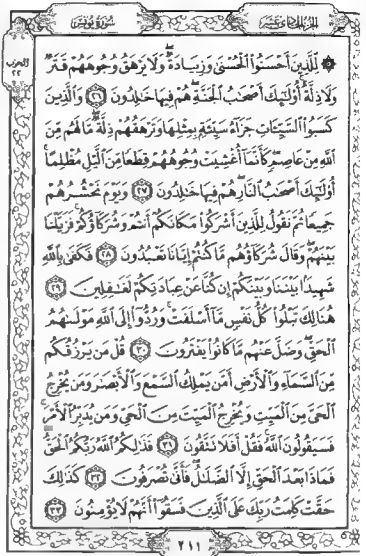 الجزء الحادي عشر
سورة يونس
الحزب
٢٢
لِّلَّذِينَ أَحْسَنُوا۟ ٱلْحُسْنَىٰ وَزِيَادَةٌ ۖ وَلَا يَرْهَقُ وُجُوهَهُمْ قَتَرٌ
وَلَا ذِلَّةٌ ۚ أُو۟لَٰٓئِكَ أَصْحَٰبُ ٱلْجَنَّةِ ۖ هُمْ فِيهَا خَٰلِدُونَ ٢٦ وَٱلَّذِينَ
كَسَبُوا۟ ٱلسَّيِّـَٔاتِ جَزَآءُ سَيِّئَةٍۭ بِمِثْلِهَا وَتَرْهَقُهُمْ ذِلَّةٌ ۖ مَّا لَهُم مِّنَ
ٱللَّهِ مِنْ عَاصِمٍ ۖ كَأَنَّمَآ أُغْشِيَتْ وُجُوهُهُمْ قِطَعًا مِّنَ ٱلَّيْلِ مُظْلِمًا ۚ
أُو۟لَٰٓئِكَ أَصْحَٰبُ ٱلنَّارِ ۖ هُمْ فِيهَا خَٰلِدُونَ ٢٧ وَيَوْمَ نَحْشُرُهُمْ
جَمِيعًا ثُمَّ نَقُولُ لِلَّذِينَ أَشْرَكُوا۟ مَكَانَكُمْ أَنتُمْ وَشُرَكَآؤُكُمْ ۚ فَزَيَّلْنَا
بَيْنَهُمْ ۖ وَقَالَ شُرَكَآؤُهُم مَّا كُنتُمْ إِيَّانَا تَعْبُدُونَ ٢٨ فَكَفَىٰ بِٱللَّهِ
شَهِيدًۢا بَيْنَنَا وَبَيْنَكُمْ إِن كُنَّا عَنْ عِبَادَتِكُمْ لَغَٰفِلِينَ ٢٩
هُنَالِكَ تَبْلُوا۟ كُلُّ نَفْسٍ مَّآ أَسْلَفَتْ ۚ وَرُدُّوٓا۟ إِلَى ٱللَّهِ مَوْلَىٰهُمُ
ٱلْحَقِّ ۖ وَضَلَّ عَنْهُم مَّا كَانُوا۟ يَفْتَرُونَ ٣٠ قُلْ مَن يَرْزُقُكُم
مِّنَ ٱلسَّمَآءِ وَٱلْأَرْضِ أَمَّن يَمْلِكُ ٱلسَّمْعَ وَٱلْأَبْصَٰرَ وَمَن يُخْرِجُ
ٱلْحَىَّ مِنَ ٱلْمَيِّتِ وَيُخْرِجُ ٱلْمَيِّتَ مِنَ ٱلْحَىِّ وَمَن يُدَبِّرُ ٱلْأَمْرَ ۚ
فَسَيَقُولُونَ ٱللَّهُ ۚ فَقُلْ أَفَلَا تَتَّقُونَ ٣١ فَذَٰلِكُمُ ٱللَّهُ رَبُّكُمُ ٱلْحَقُّ ۖ
فَمَاذَا بَعْدَ ٱلْحَقِّ إِلَّا ٱلضَّلَٰلُ ۖ فَأَنَّىٰ تُصْرَفُونَ ٣٢ كَذَٰلِكَ
حَقَّتْ كَلِمَتُ رَبِّكَ عَلَى ٱلَّذِينَ فَسَقُوٓا۟ أَنَّهُمْ لَا يُؤْمِنُونَ ٣٣
٢١١